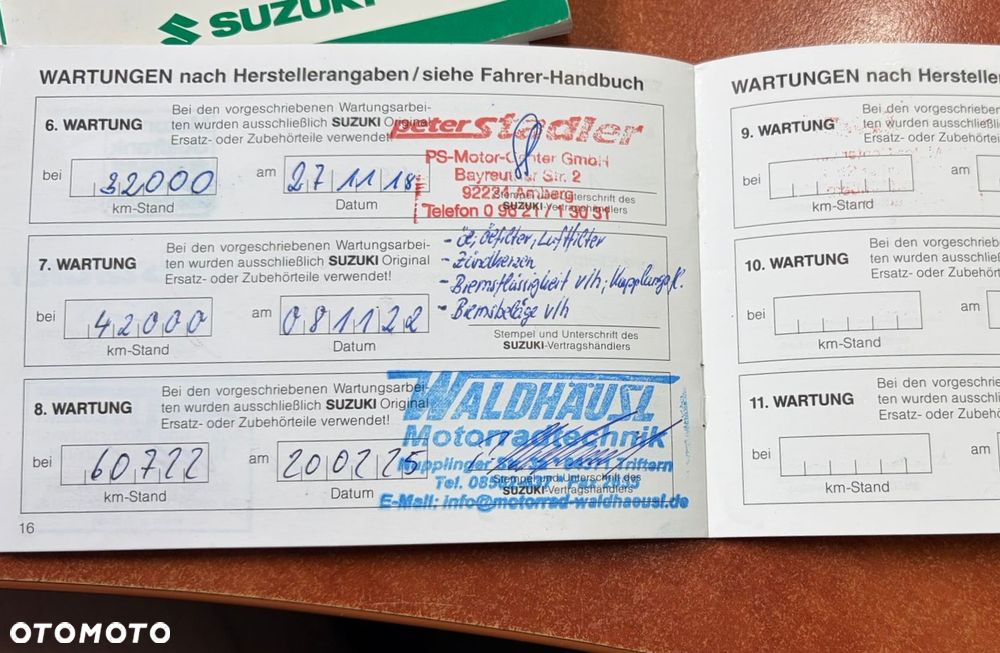 SUZUKI
WARTUNGEN nach Herstellerangaben/siehe Fahrer-Handbuch
6. WARTUNG
Bei den vorgeschriebenen Wartungsarbei-
ten wurden ausschließlich SUZUKI Original
Ersatz- oder Zubehörteile verwendet!
peter stadler
PS-Motor-Center GmbH
Bayreuther Str. 2
92224 Amberg
Telefon 0 96 21 / 1 30 31
bei 32000 am 27 11 18
km-Stand Datum
Stempel und Unterschrift des
SUZUKI-Vertragshändlers
7. WARTUNG
Bei den vorgeschriebenen Wartungsarbei-
ten wurden ausschließlich SUZUKI Original
Ersatz- oder Zubehörteile verwendet!
- Öl, Ölfilter, Luftfilter
- Zündkerzen
- Bremsflüssigkeit v/h, Kupplungsfl.
- Bremsbeläge v/h
bei 42000 am 081122
km-Stand Datum
Stempel und Unterschrift des
SUZUKI-Vertragshändlers
8. WARTUNG
Bei den vorgeschriebenen Wartungsarbei-
ten wurden ausschließlich SUZUKI Original
Ersatz- oder Zubehörteile verwendet!
WALDHÄUSL
Motorradtechnik
Triftern
Tel.
E-Mail: info@motorrad-waldhaeusl.de
bei 60722 am 200225
km-Stand Datum
Stempel und Unterschrift des
SUZUKI-Vertragshändlers
16
WARTUNGEN nach Hersteller
9. WARTUNG
Bei den vorgeschrieben
ten wurden ausschließli
Ersatz- oder Zubehörtei
bei am
km-Stand
10. WARTUNG
Bei den vorgeschrieb
ten wurden ausschließ
Ersatz- oder Zubehört
bei am
km-Stand
11. WARTUNG
Bei den vorgeschrie
ten wurden ausschli
Ersatz- oder Zubehö
bei am
km-Stand
OTOMOTO